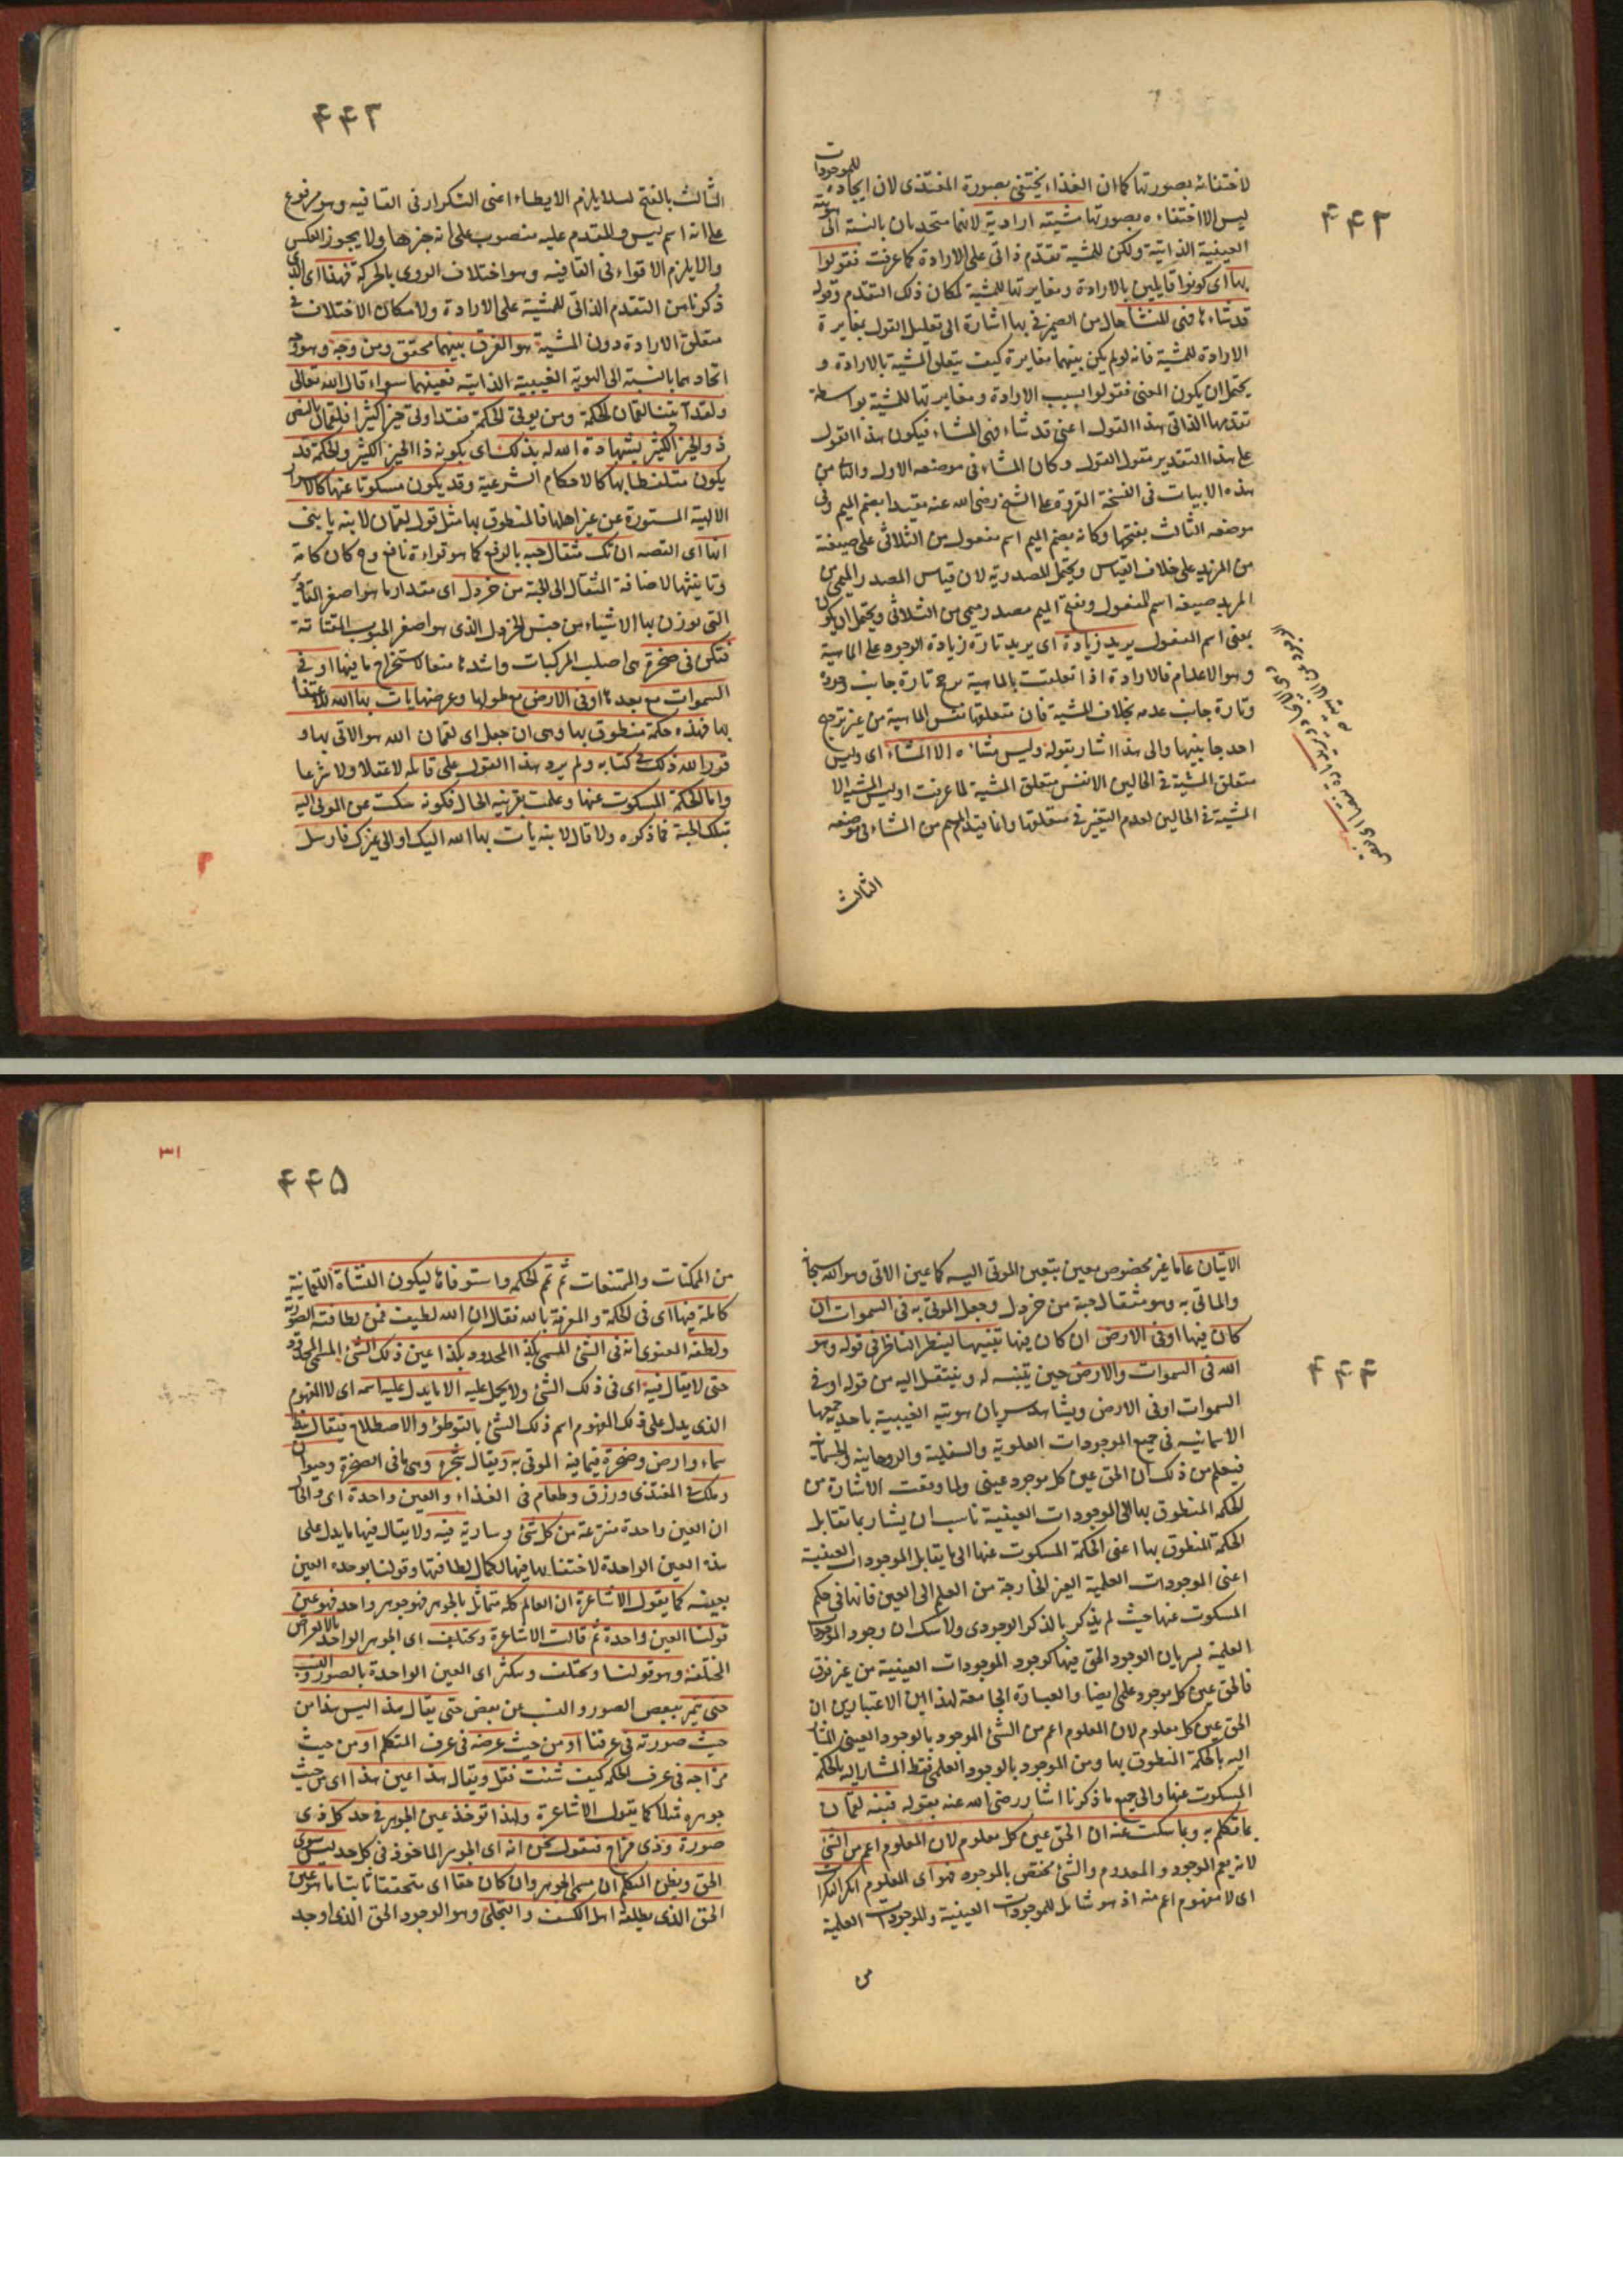 ۴۴۲
لاختفائه بصورتها كما ان الغذاء يختفى بصورة المغتذى لان ايجاده للموجودات
ليس الا اختفاءه بصورتها مشيته ارادية لانهما متحدان بالنسبة الى هويته
الغيبية الذاتية ولكن للمشية تقدم ذاتى على الارادة كما عرفت فقولوا
بها اى كونوا قايلين بالارادة ومغايرتها للمشية لمكان ذلك التقدم وقوله
قد شاءها فهى المشا حال من الضمير فى بها اشارة الى تعليل القول بمغايرة
الارادة للمشية فانه لو لم يكن بينهما مغايرة كيف يتعلق المشية بالارادة و
يحتمل ان يكون المعنى فقولوا بسبب الارادة ومغايرتها للمشية بواسطة
تقدمها الذاتى هذا القول اعنى قد شاء فهى المشاء فيكون هذا القول
على هذا التقدير مقول القول وكان المشاء فى موضعه الاول والثانى من
هذه الابيات فى النسخة المقروة على الشيخ رضى الله عنه مقيدا بضم الميم وفى
موضعه الثالث بفتحها وكانه بضم الميم اسم مفعول من الثلاثى على صيغة
من المزيد على خلاف القياس ويحتمل المصدرية لان قياس المصدر الميمى من
المزيد صيغة اسم المفعول وبفتح الميم مصدر ميمى من الثلاثى ويحتمل ان يكون
بمعنى اسم المفعول يريد زيادة اى يريد تارة زيادة الوجود على الماهية
وهو الاعلام فالارادة اذا تعلقت بالماهية يرجح تارة جانب وجوده
وتارة جانب عدمه بخلاف المشية فان متعلقها نفس الماهية من غير ترجيح
احد جانبيها والى هذا اشار بقوله وليس مشاءه الا المشاء اى وليس
متعلق المشية فى الحالين الا نفس متعلق المشية لما عرفت او ليس المشية الا
المشية فى الحالين لعدم التغير فى متعلقها وانما قيد الميم من المشاء فى موضعه
الثالث
۴۴۳
الثالث بالفتح لئلا يلزم الايطاء اعنى التكرار فى القافيه وهو مرفوع
على انه اسم ليس والمقدم عليه منصوب على انه خبرها ولا يجوز العكس
والا يلزم الاقواء فى القافيه وهو اختلاف الروى بالحركة فهذا اى الذى
ذكرنا من التقدم الذاتى للمشية على الارادة ولامكان الاختلاف فى
متعلق الارادة دون المشية هو الفرق بينهما محقق ومن وجه وهو وجه
اتحادهما بالنسبة الى الهوية الغيبية الذاتية فعينهما سواء قال الله تعالى
ولقد آتينا لقمان الحكمة ومن يوتى الحكمة فقد اوتى خيرا كثيرا فلقمان بالنص
ذو الخير الكثير بشهادة الله له بذلك اى بكونه ذا الخير الكثير والحكمة قد
يكون متلفظا بها كالاحكام الشرعية وقد يكون مسكوتا عنها كالاسرار
الالهية المستورة عن غير اهلها فالمنطوق بها مثل قول لقمان لابنه يا بنى
انها اى القصه ان تك مثقال حبه بالرفع كما هو قراءة نافع وح كان تامة
وتانيثها لاضافة المثقال الى الحبة من خردل اى مقدار ما هو اصغر المقادير
التى توزن بها الاشياء من جنس الخردل الذى هو اصغر الحبوب المقتاتة
فتكن فى صخرة هى اصلب المركبات واشدها منعا لاستخراج ما فيها او فى
السموات مع بعدها او فى الارض مع طولها وعرضها يات بها الله للاغتذاء
بها فهذه حكمة منطوق بها وهى ان جعل اى لقمان الله هو الاتى بها و
قرر الله ذلك فى كتابه ولم يرد هذا القول على قائله لا عقلا ولا شرعا
واما الحكمة المسكوت عنها وعلمت بقرينة الحال فكونه سكت عن الموتى اليه
بتلك الحبة فما ذكره ولا قال لابنه يات بها الله اليك او الى غيرك فارسل
۴۴۴
الاتيان عاما غير مخصوص معين بتعين الموتى اليه كما عين الاتى وهو الله سبحانه
والماتى به وهو مثقال حبة من خردل وجعل الموتى به فى السموات ان
كان فيها او فى الارض ان كان فيها تنبيها لينظر الناظر فى قوله وهو
الله فى السموات والارض حين يتنبه له وينتقل اليه من قوله او فى
السموات او فى الارض ويشاهد سريان هويته الغيبية باحدية جمعها
الاسمائيه فى جميع الموجودات العلوية والسفلية والروحانية والجسمانية
فيعلم من ذلك ان الحق عين كل موجود عينى ولما وقعت الاشارة من
الحكمة المنطوق بها الى الموجودات العينية ناسب ان يشار بما تقابل
الحكمة المنطوق بها اعنى الحكمة المسكوت عنها الى ما يقابل الموجودات العينية
اعنى الموجودات العلمية الغير الخارجة من العلم الى العين فانها فى حكم
المسكوت عنها حيث لم يذكر بالذكر الوجودى ولا شك ان وجود الموجودات
العلمية بسريان الوجود الحق فيها كوجود الموجودات العينية من غير فرق
فالحق عين كل موجود علمى ايضا والعبارة الجامعة لهذا من الاعتبارين ان
الحق عين كل معلوم لان المعلوم اعم من الشئ الموجود بالوجود العينى المشار
اليه بالحكمة المنطوق بها ومن الموجود بالوجود العلمى فقط المشار اليه بالحكمة
المسكوت عنها والى جميع ما ذكرنا اشار رضى الله عنه بقوله فنبه لقمان
بما تكلم به وبما سكت عنه ان الحق عين كل معلوم لان المعلوم اعم من الشئ
لانه يعم الموجود والمعدوم والشئ مختص بالموجود فهو اى المعلوم انكر النكرات
اى لا مفهوم اعم منه اذ هو شامل للموجودات العينية والموجودات العلمية
من
۳۱
۴۴۵
من الممكنات والممتنعات ثم تمم الحكمة واستوفاها ليكون النشاة اللقمانية
كاملة فيها اى فى الحكمة والمعرفة بالله فقال ان الله لطيف فمن لطافته الصورية
ولطفه المعنوى انه فى الشئ المسمى بكذا المحدود بكذا عين ذلك الشئ المسمى المحدود
حتى لا يقال فيه اى فى ذلك الشئ ولا يحمل عليه الا ما يدل عليه اسمه اى لا المفهوم
الذى يدل على ذلك المفهوم اسم ذلك الشئ بالتوطؤ والاصطلاح فيقال هذا
سماء وارض وصخرة فيما فيه الموتى به ويقال شجرة وهى ما فى الصخرة وحيوان
وملك فى المغتذى ورزق وطعام فى الغذاء والعين واحدة اى والحال
ان العين واحدة منتزعة من كل شئ وسارية فيه ولا يقال فيها ما يدل على
هذه العين الواحدة لاختفائها فيها لكمال لطافتها وقولنا بوحدة العين
بعينه كما يقول الاشاعرة ان العالم كله متماثل بالجوهر فهو جوهر واحد فهو عين
قولنا العين واحدة ثم قالت الاشاعرة ويختلف اى الجوهر الواحد بالاعراض
المختلفة وهو قولنا ويختلف ويتكثر اى العين الواحدة بالصور والنسب
حتى يتميز بعض الصور والنسب عن بعض حتى يقال هذا ليس هذا من
حيث صورته فى عرفنا او من حيث عرضه فى عرف المتكلم او من حيث
مزاجه فى عرف الحكم كيف شئت فقل ويقال هذا عين هذا اى من حيث
جوهره مثلا كما يقول الاشاعرة ولهذا توخذ عين الجوهر فى حد كل ذى
صورة وذى مزاج فنقول نحن انه اى الجوهر الماخوذ فى كل حد ليس سوى
الحق ويظن المتكلم ان مسمى الجوهر وان كان حقا اى متحققا ثابتا ما هو عين
الحق الذى يطلقه اهل الكشف والتجلى وهو الوجود الحق الذى اوجد